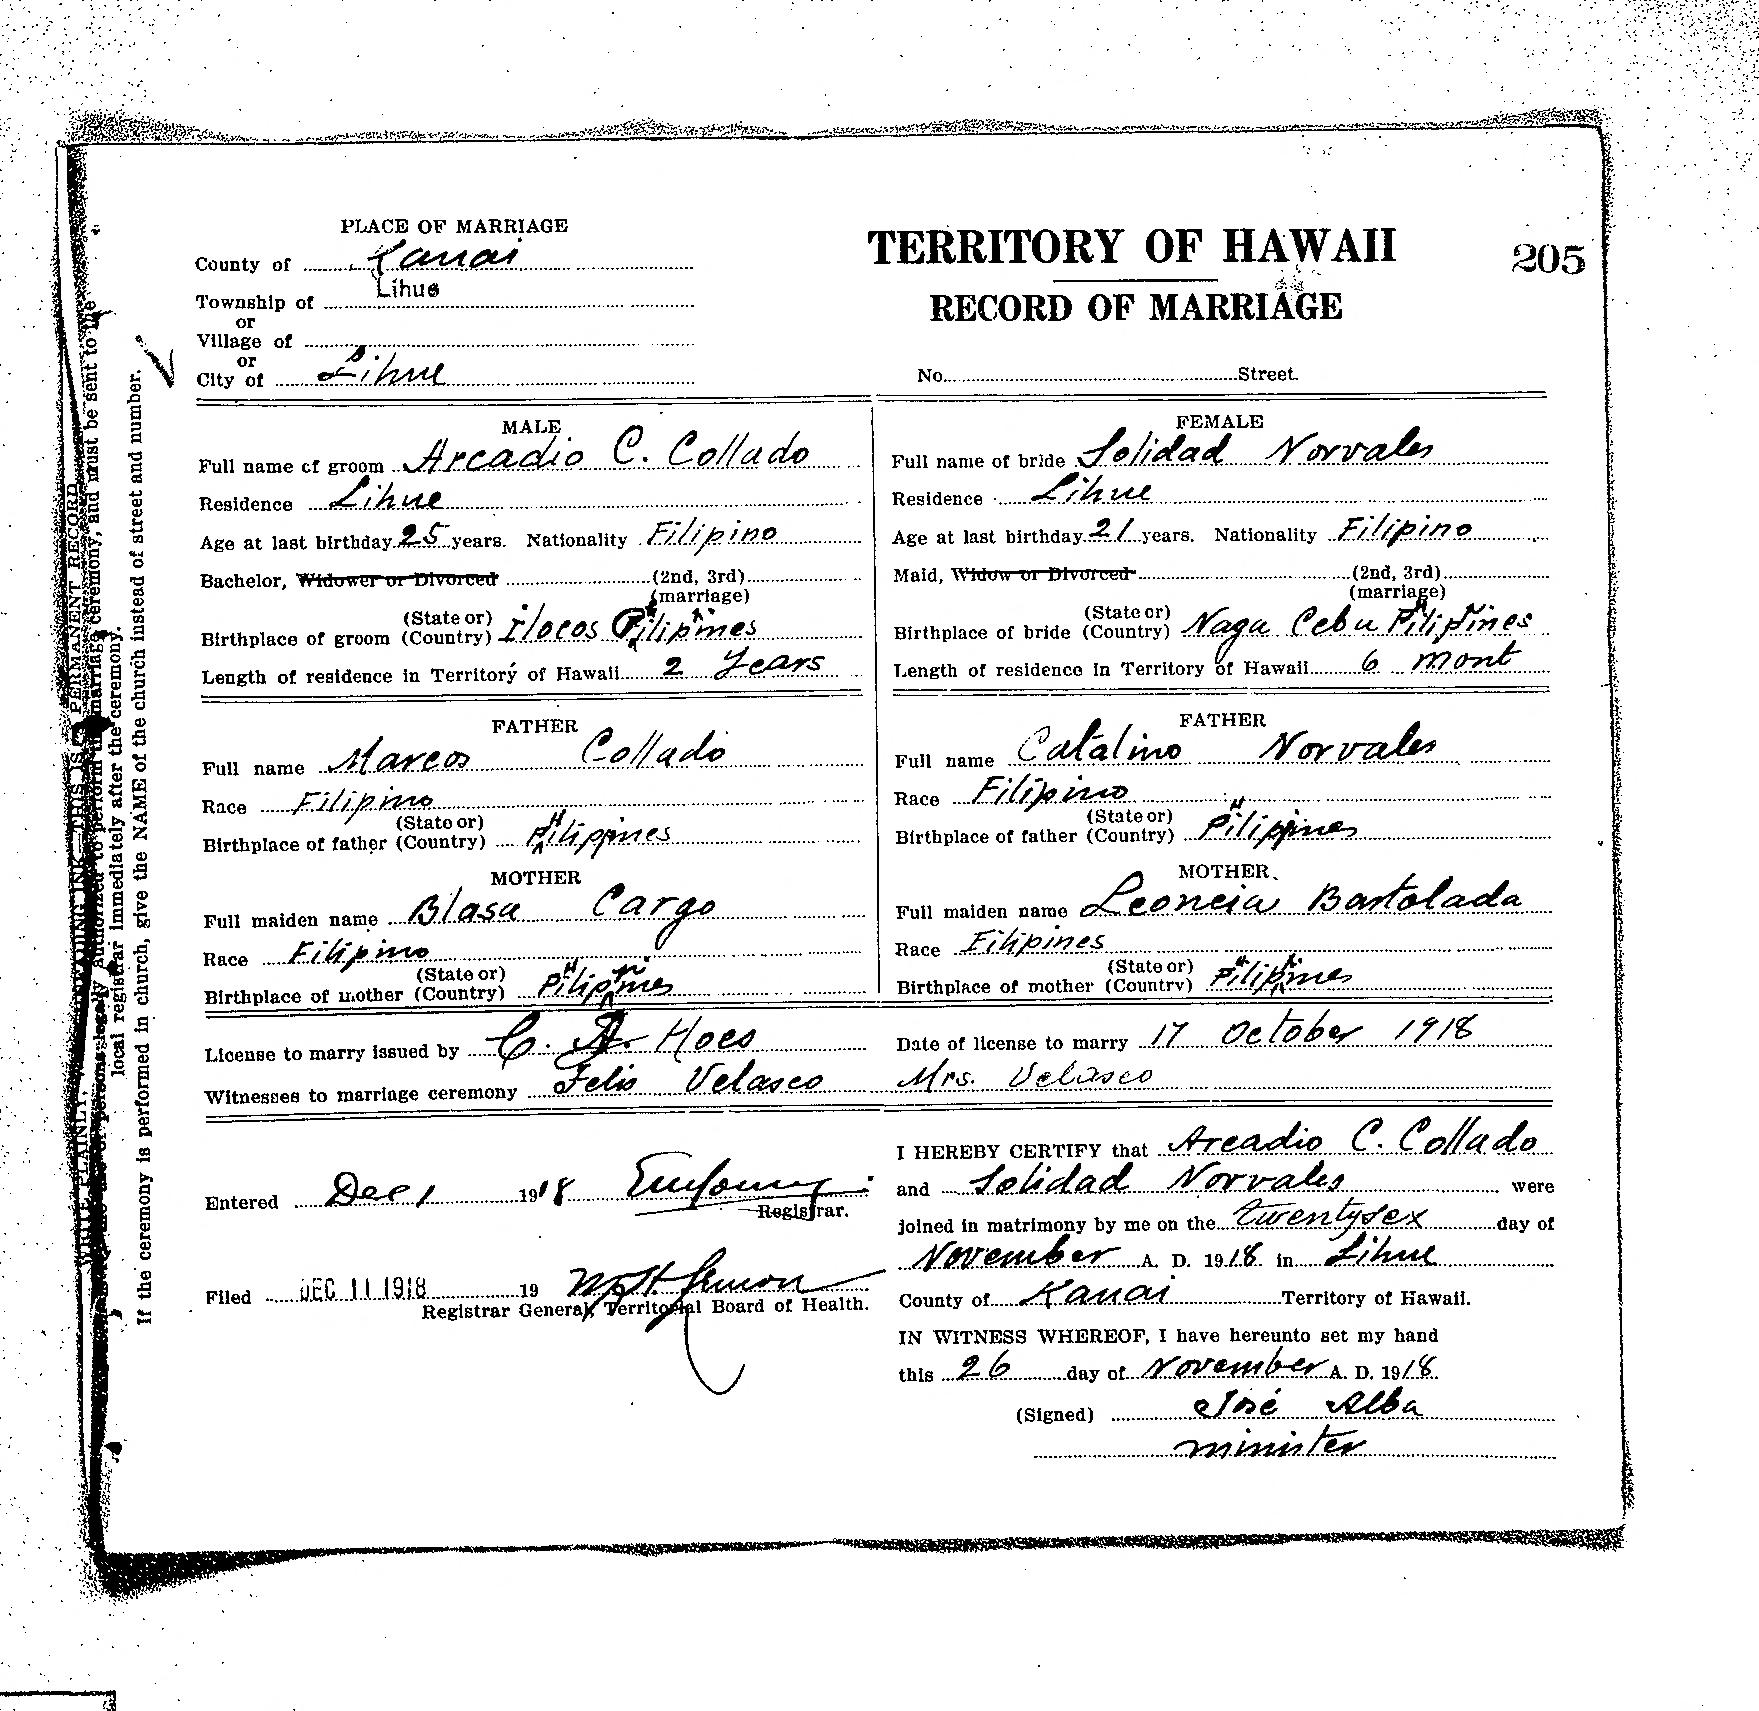 PLACE OF MARRIAGE
County of Kauai
Lihue
Township of
or
Village of
or
City of Lihue
TERRITORY OF HAWAII
205
RECORD OF MARRIAGE
No. Street.
MALE
Full name of groom Arcadio C. Collado
Residence Lihue
Age at last birthday 25 years. Nationality Filipino
Bachelor, Widower or Divorced (2nd, 3rd)
(marriage)
(State or)
Birthplace of groom (Country) Ilocos Philippines
Length of residence in Territory of Hawaii 2 Years
FEMALE
Full name of bride Solidad Norvales
Residence Lihue
Age at last birthday 21 years. Nationality Filipino
Maid, Widow or Divorced (2nd, 3rd)
(marriage)
(State or)
Birthplace of bride (Country) Naga Cebu Philippines
Length of residence in Territory of Hawaii 6 mont
FATHER
Full name Marcos Collado
Race Filipino
(State or)
Birthplace of father (Country) Philippines
MOTHER
Full maiden name Blasa Cargo
Race Filipino
(State or)
Birthplace of mother (Country) Philippines
FATHER
Full name Catalino Norvales
Race Filipino
(State or)
Birthplace of father (Country) Philippines
MOTHER
Full maiden name Leoncia Bartolada
Race Filipines
(State or)
Birthplace of mother (Country) Philippines
License to marry issued by C. A. Hoes
Date of license to marry 17 October 1918
Witnesses to marriage ceremony Felis Velasco Mrs. Velasco
Entered Dec 1 1918
Registrar.
Filed DEC 11 1918 19
Registrar General, Territorial Board of Health.
I HEREBY CERTIFY that Arcadio C. Collado
and Solidad Norvales were
joined in matrimony by me on the twentysex day of
November A. D. 1918 in Lihue
County of Kauai Territory of Hawaii.
IN WITNESS WHEREOF, I have hereunto set my hand
this 26 day of November A. D. 1918.
(Signed) José Alba
minister
local registrar immediately after the ceremony.
If the ceremony is performed in church, give the NAME of the church instead of street and number.